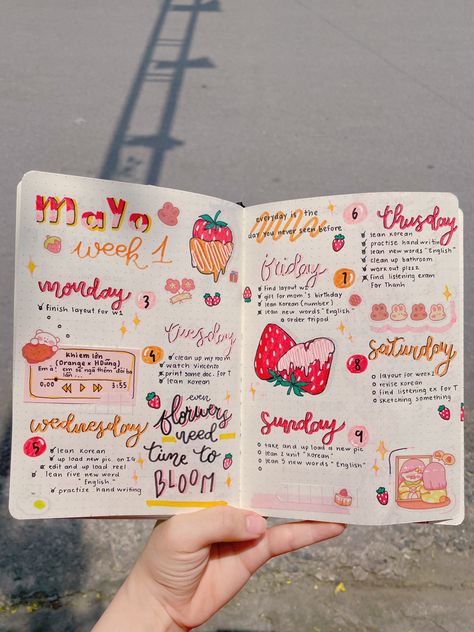 maYo
week 1
monday
3
finish layout for w1
Khiem lồn
(Orange x HDung)
Em à! em sẽ ngã thêm đôi ba
lần ...
0,00
3:55
wednesday
5
lean Korean
up load new pic on IG
edit and up load reel
lean five new word
"English"
practise hand writing
tuesday
4
clean up my room
watch Vincenzo
print some doc. for T
lean Korean
even
flowers
need
time to
BLOOM
everyday is the
day you never seen before
friday
7
find layout w2
gift for mom's birthday
lean Korean (number)
lean new words "English"
order tripod
Sunday
9
take and up load a new pic
lean 2 unit "Korean"
lean 5 new words "English"
6
thusday
lean korean
practise hand writin
lean new words "English"
clean up bathroom
work out plzzz
find listening exam
for Thanh
saturday
8
layout for week2
revise Korean
find listening ex for T
sketching something